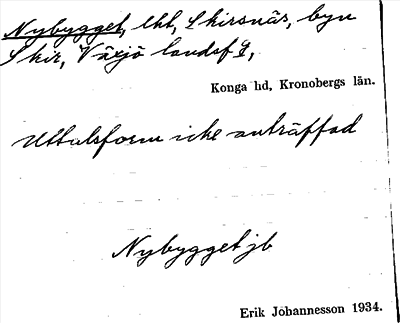 Nybygget, lht, Skirsnäs, byn
Skir, Växjö landsf g,
Konga hd, Kronobergs län.
Uttalsform icke anträffad
Nybygget jb
Erik Johannesson 1934.